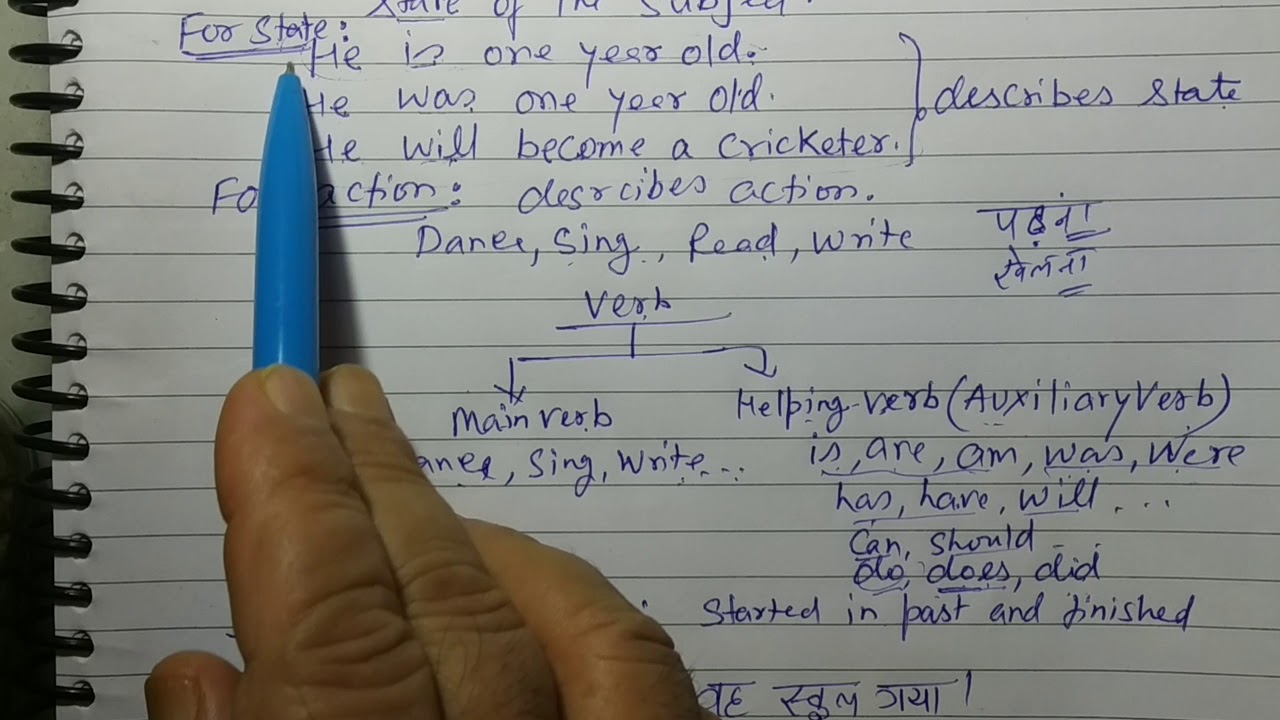 State of the Subject.
For State:
He is one year old.
He was one year old.
He will become a cricketer.
describes state
For action: desrcibes action.
Dance, Sing, Read, Write
पढ़ना
खेलना
Verb
Main verb
Helping-verb (Auxiliary Verb)
Dance, Sing, Write...
is, are, am, was, were
has, have, will . ...
Can, should
do, does, did
Started in past and finished
वह स्कूल गया।